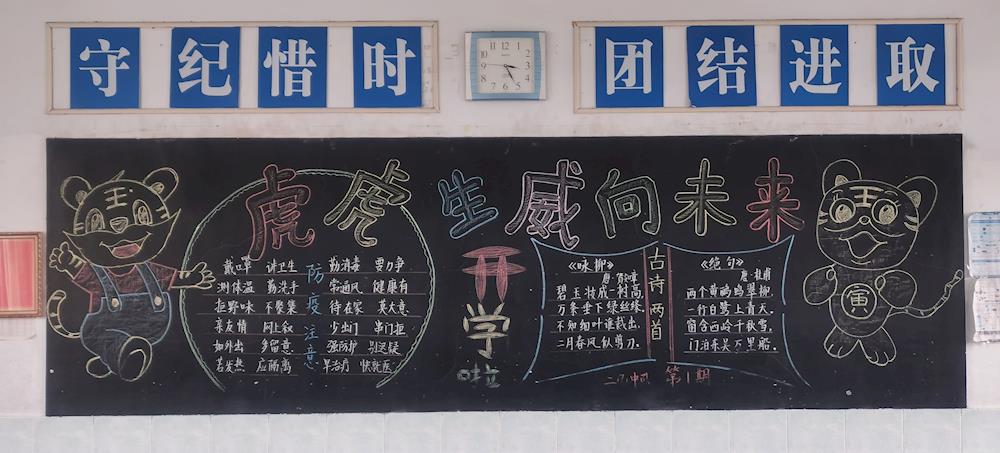 守纪惜时
团结进取
虎虎生威向未来
开学啦
防疫注意
戴口罩 讲卫生 勤消毒 要力争
测体温 勤洗手 常通风 健康有
拒野味 不聚集 待在家 莫大意
亲友情 网上叙 少出门 串门拒
如外出 多留意 强防护 别迟疑
若发热 应隔离 早治疗 快就医
古诗两首
《咏柳》
唐·贺知章
碧玉妆成一树高,
万条垂下绿丝绦。
不知细叶谁裁出,
二月春风似剪刀。
《绝句》
唐·杜甫
两个黄鹂鸣翠柳,
一行白鹭上青天。
窗含西岭千秋雪,
门泊东吴万里船。
第1期
寅